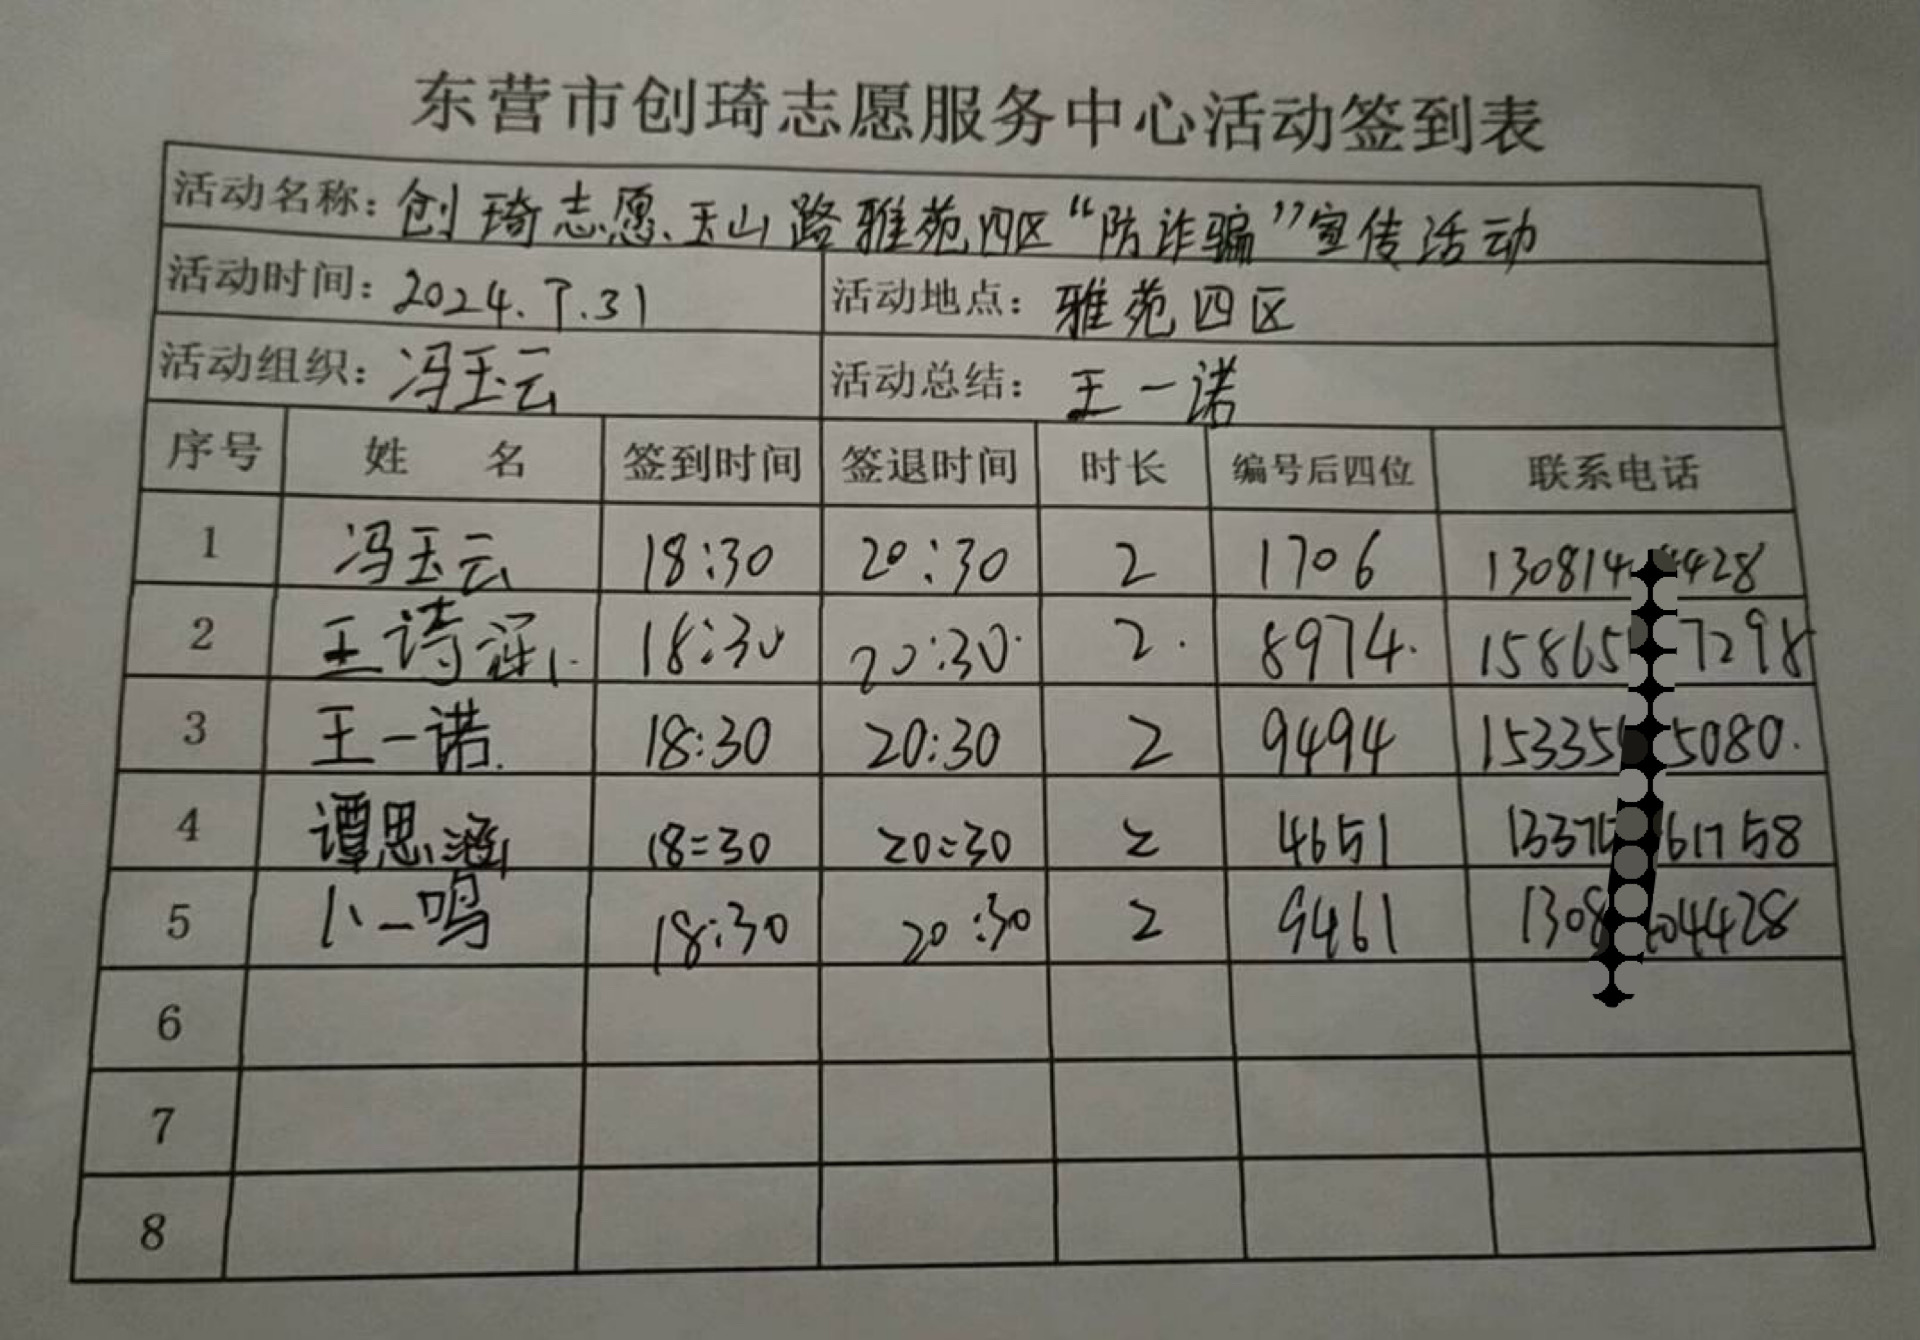 东营市创琦志愿服务中心活动签到表
活动名称：创琦志愿、玉山路雅苑四区“防诈骗”宣传活动
活动时间：2024.7.31 活动地点：雅苑四区
活动组织：冯玉云 活动总结：王一诺
序号 姓名 签到时间 签退时间 时长 编号后四位 联系电话
1 冯玉云 18:30 20:30 2 1706 130814 4428
2 王诗涵 18:30 20:30 2 8974 15865 7298
3 王一诺 18:30 20:30 2 9494 15335 5080
4 谭思涵 18:30 20:30 2 4651 1337 61758
5 卜一鸣 18:30 20:30 2 9461 1308 04428
6
7
8